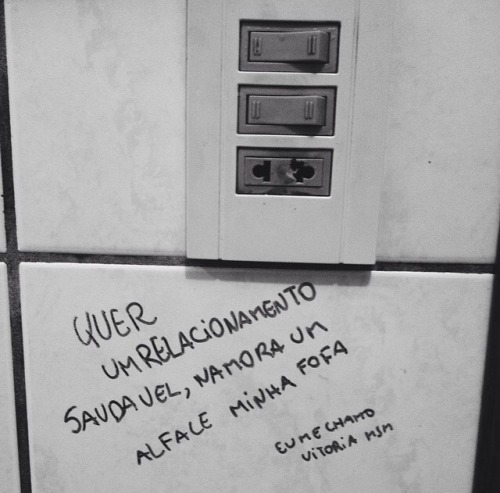 QUER
UM RELACIONAMENTO
SAUDAVEL, NAMORA UM
ALFALE MINHA FOFA
EU ME CHAMO
VITORIA MSM